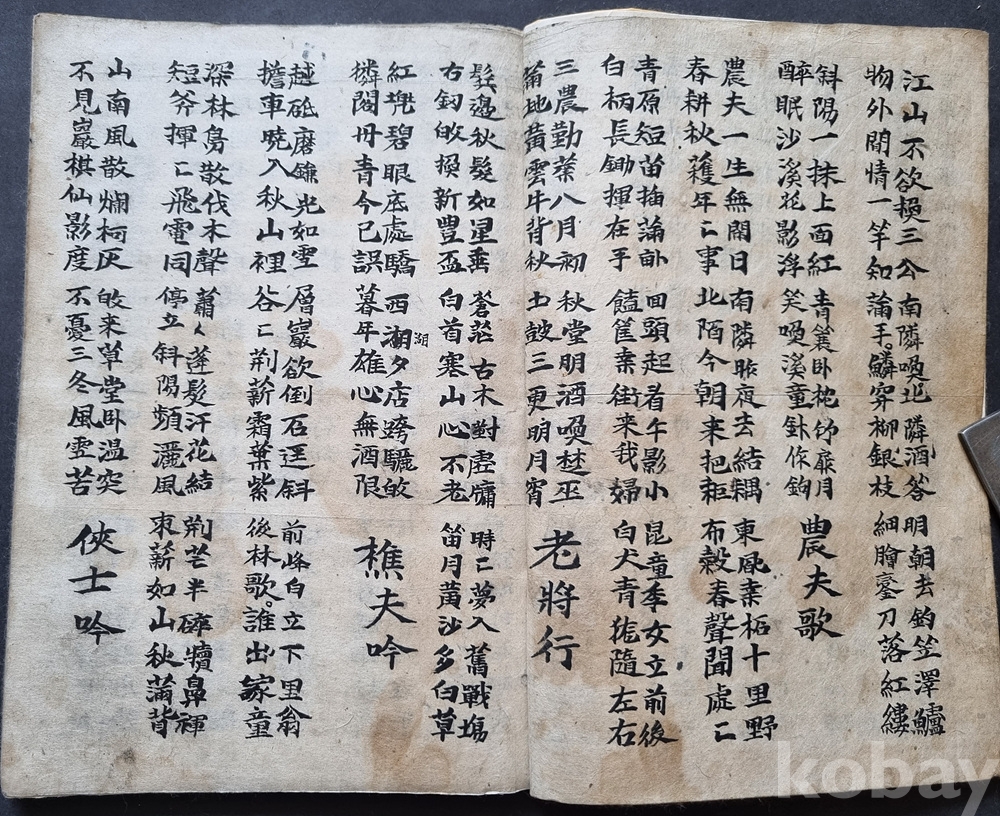 江山不欲換三公 南隣喚北隣酒答 明朝去釣笠澤鱸
物外閒情一竿知 滿手鱗穿柳銀枝 細膾鸞刀落紅縷
斜陽一抹上面紅 青蓑卧枕竹扉月
醉眠沙溪花影浮 笑喚溪童針作鉤 農夫歌
農夫一生無閒日 南隣昨夜去結耦 東風桑柘十里野
春耕秋穫年〻事 北陌今朝来把耟 布穀春聲聞處〻
青原短苗插滿 回頭起看午影小 昆童季女立前後
白柄長鋤揮在手 饁筐桑街来我婦 白犬青狵隨左右
三農勤業八月初 秋堂明酒喚楚巫
滿地黃雲牛背秋 土鼓三更明月宵 老將行
鬂邊秋髮如星垂 蒼茫古木對虛牗 時〻夢入舊戰塲
右釰皈換新豐盃 白首塞山心不老 笛月黃沙多白草
紅碧眼底處驕 西湖湖夕店跨驪皈
獜閣丹青今已誤 暮年雄心無酒限 樵夫吟
越砥磨鐮光如雪 層巖欲倒石逕斜 前峰白立下里翁
擔車曉入秋山裡 谷〻荆薪霜葉紫 後林歌誰出家童
深林鳥散伐木聲 蕭〻蓬髮汗花結 荆芒半碎犢鼻褌
短斧揮〻飛電同 停立斜陽頻灑風 束薪如山秋滿背
山南風散爛柯灰 皈来草堂卧温突
不見巖棋仙影度 不憂三冬風雪苦 俠士吟
kobay